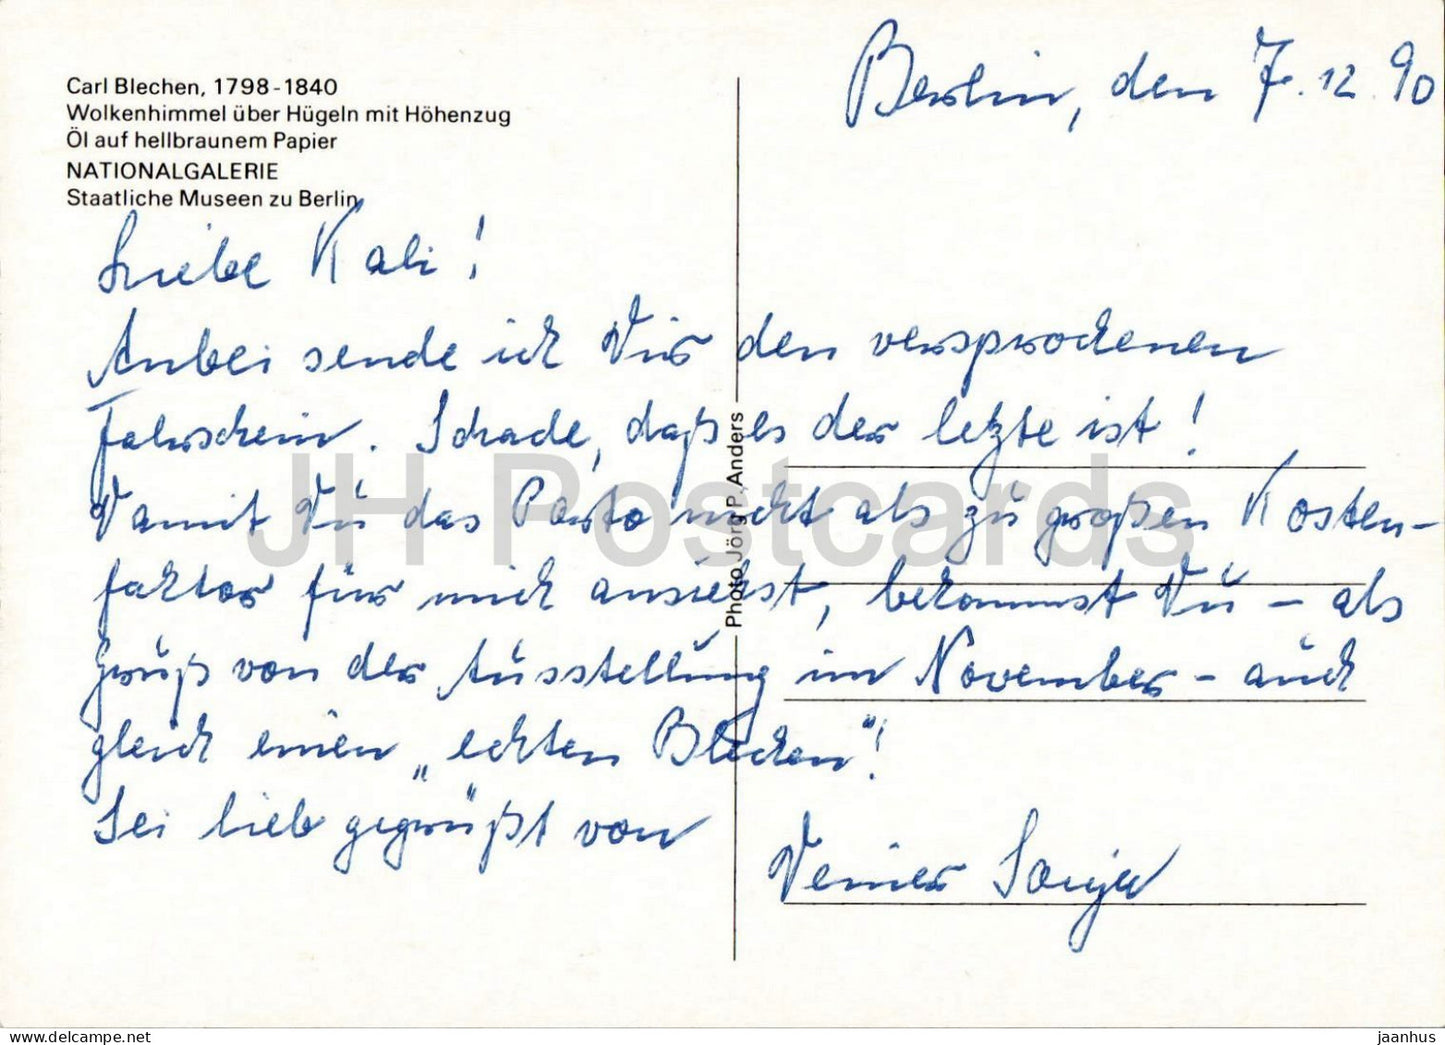 Berlin, den 7.12.90
Carl Blechen, 1798-1840
Wolkenhimmel über Hügeln mit Höhenzug
Öl auf hellbraunem Papier
NATIONALGALERIE
Staatliche Museen zu Berlin
Liebe Kati!
Anbei sende ich Dir den versprochenen
Fahrschein. Schade, daß es der letzte ist!
Damit Du das Porto nicht als zu großen Kosten-
faktor für mich ansiehst, bekommst Du – als
Gruß von der Ausstellung im November – auch
gleich einen „echten Blechen"!
Sei lieb gegrüßt von
Deiner Sonja
Photo Jörg P. Anders
JH Postcards
delcampe.net
jaanhus